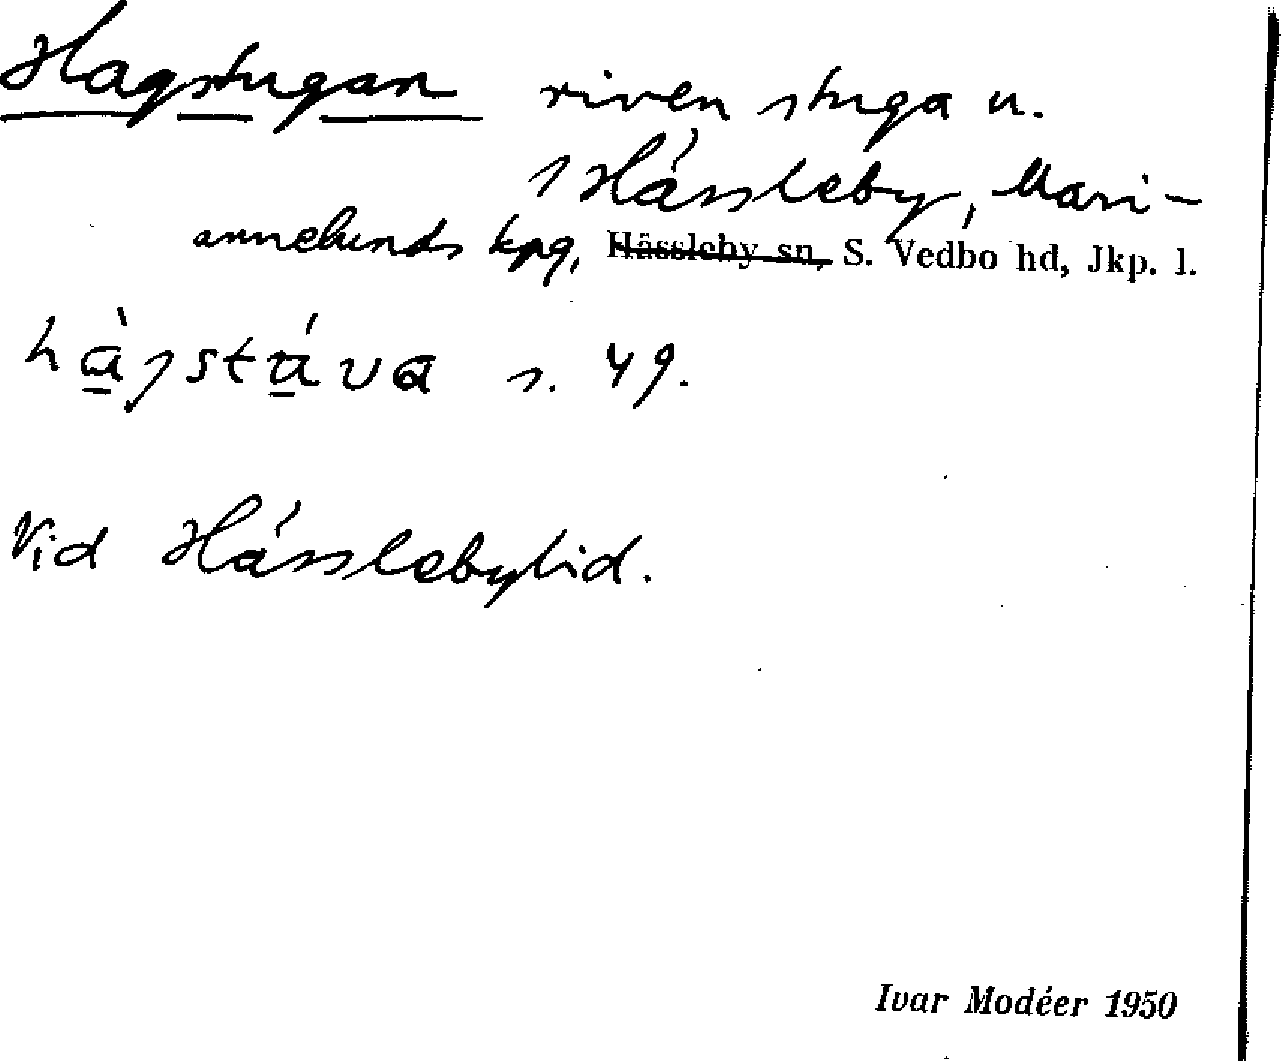 Hagstugan riven stuga u.
1 Hässleby, Mari-
annelunds kpg, Hässleby sn, S. Vedbo hd, Jkp. l.
s. 49.
Vid Hässlebylid.
Ivar Modéer 1950